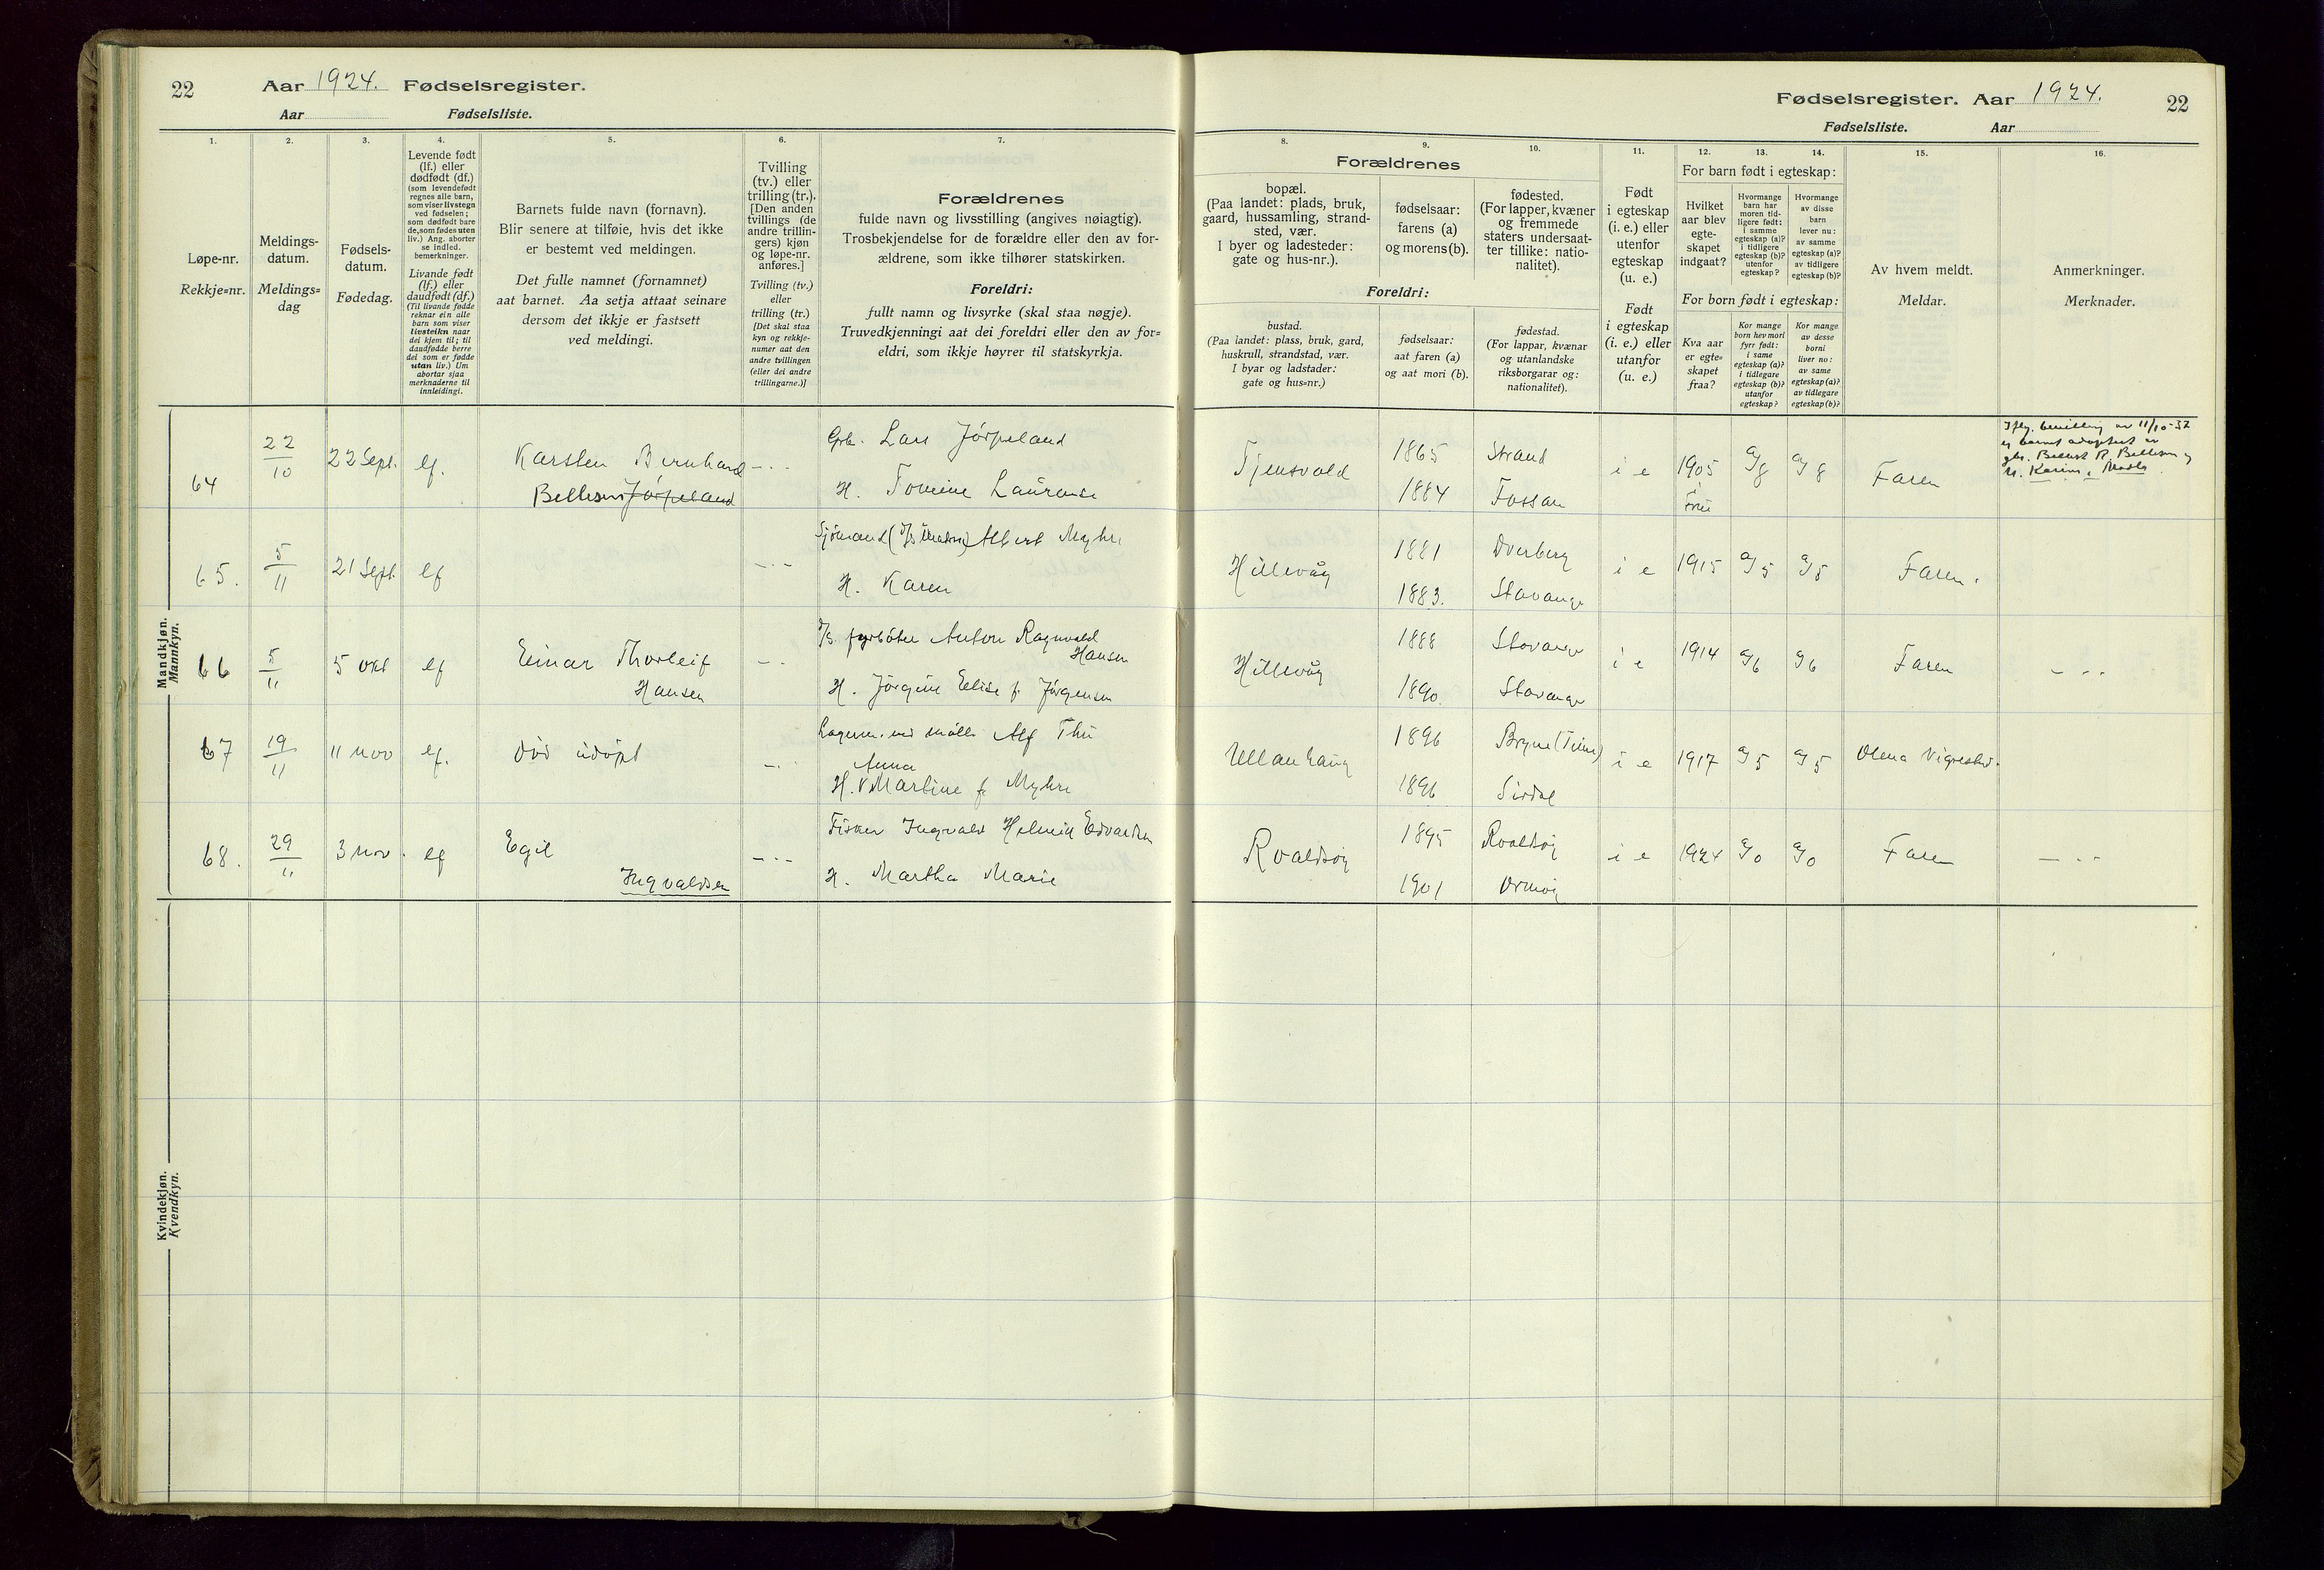 22
Aar 1924. Fødselsregister.
Aar Fødselsliste.
1.
2.
3.
4.
5.
6.
7.
Løpe-nr.
Rekkje=nr.
Meldings-
datum.
Meldings=
dag
Fødsels-
datum.
Fødedag.
Levende født
(lf.) eller
dødfødt (df.)
(som levendefødt
regnes alle barn,
som viser livstegn
ved fødselen;
som dødfødt bare
de, som fødes uten
liv.) Ang. aborter
se indled.
bemerkninger.
Livande født
(lf.) eller
daudfødt (df.)
(Til livande fødde
reknar ein alle
barn som viser
livsteikn naar
dei kjem til; til
daudfødde berre
dei som er fødde
utan liv.) Um
abortar sjaa
merknaderne til
innleidingi.
Barnets fulde navn (fornavn).
Blir senere at tilføie, hvis det ikke
er bestemt ved meldingen.
Det fulle namnet (fornamnet)
aat barnet. Aa setja attaat seinare
dersom det ikkje er fastsett
ved meldingi.
Tvilling
(tv.) eller
trilling (tr.).
[Den anden
tvillings (de
andre trillin-
gers) kjøn
og løpe-nr.
anføres.]
Tvilling (tv.)
eller
trilling (tr.)
[Det skal staa
kyn og rekkje-
numer aat den
andre tvillingen
(eller dei andre
trillingarne.)]
Forældrenes
fulde navn og livsstilling (angives nøiagtig).
Trosbekjendelse for de forældre eller den av for-
ældrene, som ikke tilhører statskirken.
Foreldri:
fullt namn og livsyrke (skal staa nøgje).
Truvedkjenningi aat dei foreldri eller den av for=
eldri, som ikkje høyrer til statskyrkja.
Mandkjøn.
Mannkyn.
64 22/10 22 Sept. lf. Karsten Bernhard Lars Jörpeland
Jörpeland H. Tomine Laurense
65. 5/11 21 Sept. lf Albert Myhre
H. Karen
66 5/11 5 okt lf Einar Thorleif fyrböter Anton Ragnvald
Hansen Hansen
H. Jörgine Elise f. Jörgensen
67 19/11 11 nov lf. död udöpt Alf Thu
Anna
H. Martine f. Myhre
68. 29/11 3 nov. lf Egil Fisker Ingvald Edvardsen
Ingvaldsen H. Martha Marie
Kvindekjøn.
Kvendkyn.
Fødselsregister. Aar 1924.
22
Fødselsliste. Aar
8.
9.
10.
11.
12.
13.
14.
15.
16.
Forældrenes
bopæl.
(Paa landet: plads, bruk,
gaard, hussamling, strand-
sted, vær.
I byer og ladesteder:
gate og hus-nr.).
fødselsaar:
farens (a)
og morens (b).
fødested.
(For lapper, kvæner
og fremmede
staters undersaat-
ter tillike: natio-
nalitet).
Foreldri:
bustad.
(Paa landet: plass, bruk, gard,
huskrull, strandstad, vær.
I byar og ladstader:
gate og hus-nr.)
fødselsaar:
aat faren (a)
og aat mori (b).
fødestad.
(For lappar, kvænar
og utanlandske
riksborgarar og:
nationalitet).
Født
i egteskap
(i. e.) eller
utenfor
egteskap
(u. e.)
Født
i egteskap
(i. e.) eller
utanfor
(u. e.)
For barn født i egteskap:
Hvilket
aar blev
egte-
skapet
indgaat?
Hvormange
barn har
moren tid-
ligere født:
i samme
egteskap (a)?
i tidligere
egteskap (b)?
utenfor
egteskap?
Hvormange
av disse
barn
lever nu:
av samme
egteskap (a)?
av tidligere
egteskap (b)?
For born født i egteskap:
Kva aar
er egte=
skapet
fraa?
Kor mange
born hev mori
fyrr født:
i same
egteskap (a)?
i tidlegare
egteskap (b)?
utanfor
egteskap?
Kor mange
av desse
borni
liver no:
av same
egteskap (a)?
av tidlegare
egteskap (b)?
Av hvem meldt.
Meldar.
Anmerkninger.
Merknader.
Tjensvold 1865 Strand i e 1905 a/8 a/8 Faren
1884 Fossan
11/10-32
Hillevåg 1881 Dverberg i e 1915 a/5 a/5 Faren.
1883. Stavanger
Hillevåg 1888 Stavanger i e 1914 a/6 a/6 Faren
1890. Stavanger
Ullanhaug 1896 Bryne (Time) i e 1917 a/5 a/5 Olena Vigrestad.
1896 Sirdal
Roaldsöy 1895 Roaldsöy i e 1924 a/0 a/0 Faren
1901 Ormöy